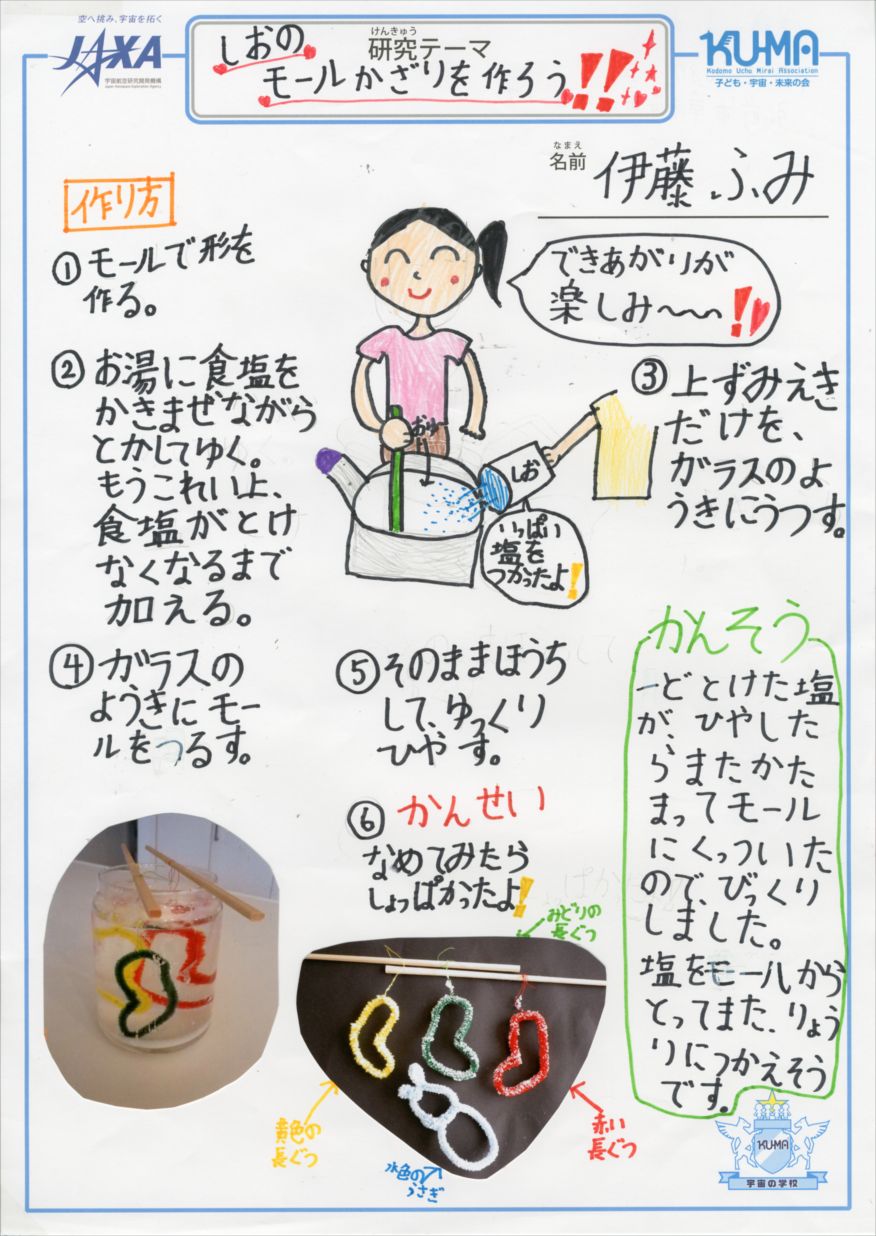 空へ挑み、宇宙を拓く
JAXA
宇宙航空研究開発機構
Japan Aerospace Exploration Agency
けんきゅう
研究テーマ
しおの
モールかざりを作ろう!!
KU-MA
Kodomo Uchu Mirai Association
子ども・宇宙・未来の会
なまえ
名前
伊藤ふみ
作り方
①モールで形を
作る。
できあがりが
楽しみ〜!
②お湯に食塩を
かきまぜながら
とかしてゆく。
もうこれい上、
食塩がとけ
なくなるまで
加える。
おゆ
しお
いっぱい
塩を
つかったよ!
③上ずみえき
だけを、
ガラスのよ
うきにうつす。
④ガラスの
ようきにモー
ルをつるす。
⑤そのままほうち
して、ゆっくり
ひやす。
⑥かんせい
なめてみたら
しょっぱかったよ!
かんそう
一どとけた塩
が、ひやした
らまたかた
まってモール
にくっついた
ので、びっくり
しました。
塩をモールから
とってまた、りょう
りにつかえそう
です。
みどりの
長ぐつ
黄色の
長ぐつ
水色の
うさぎ
赤い
長ぐつ
KU-MA
宇宙の学校